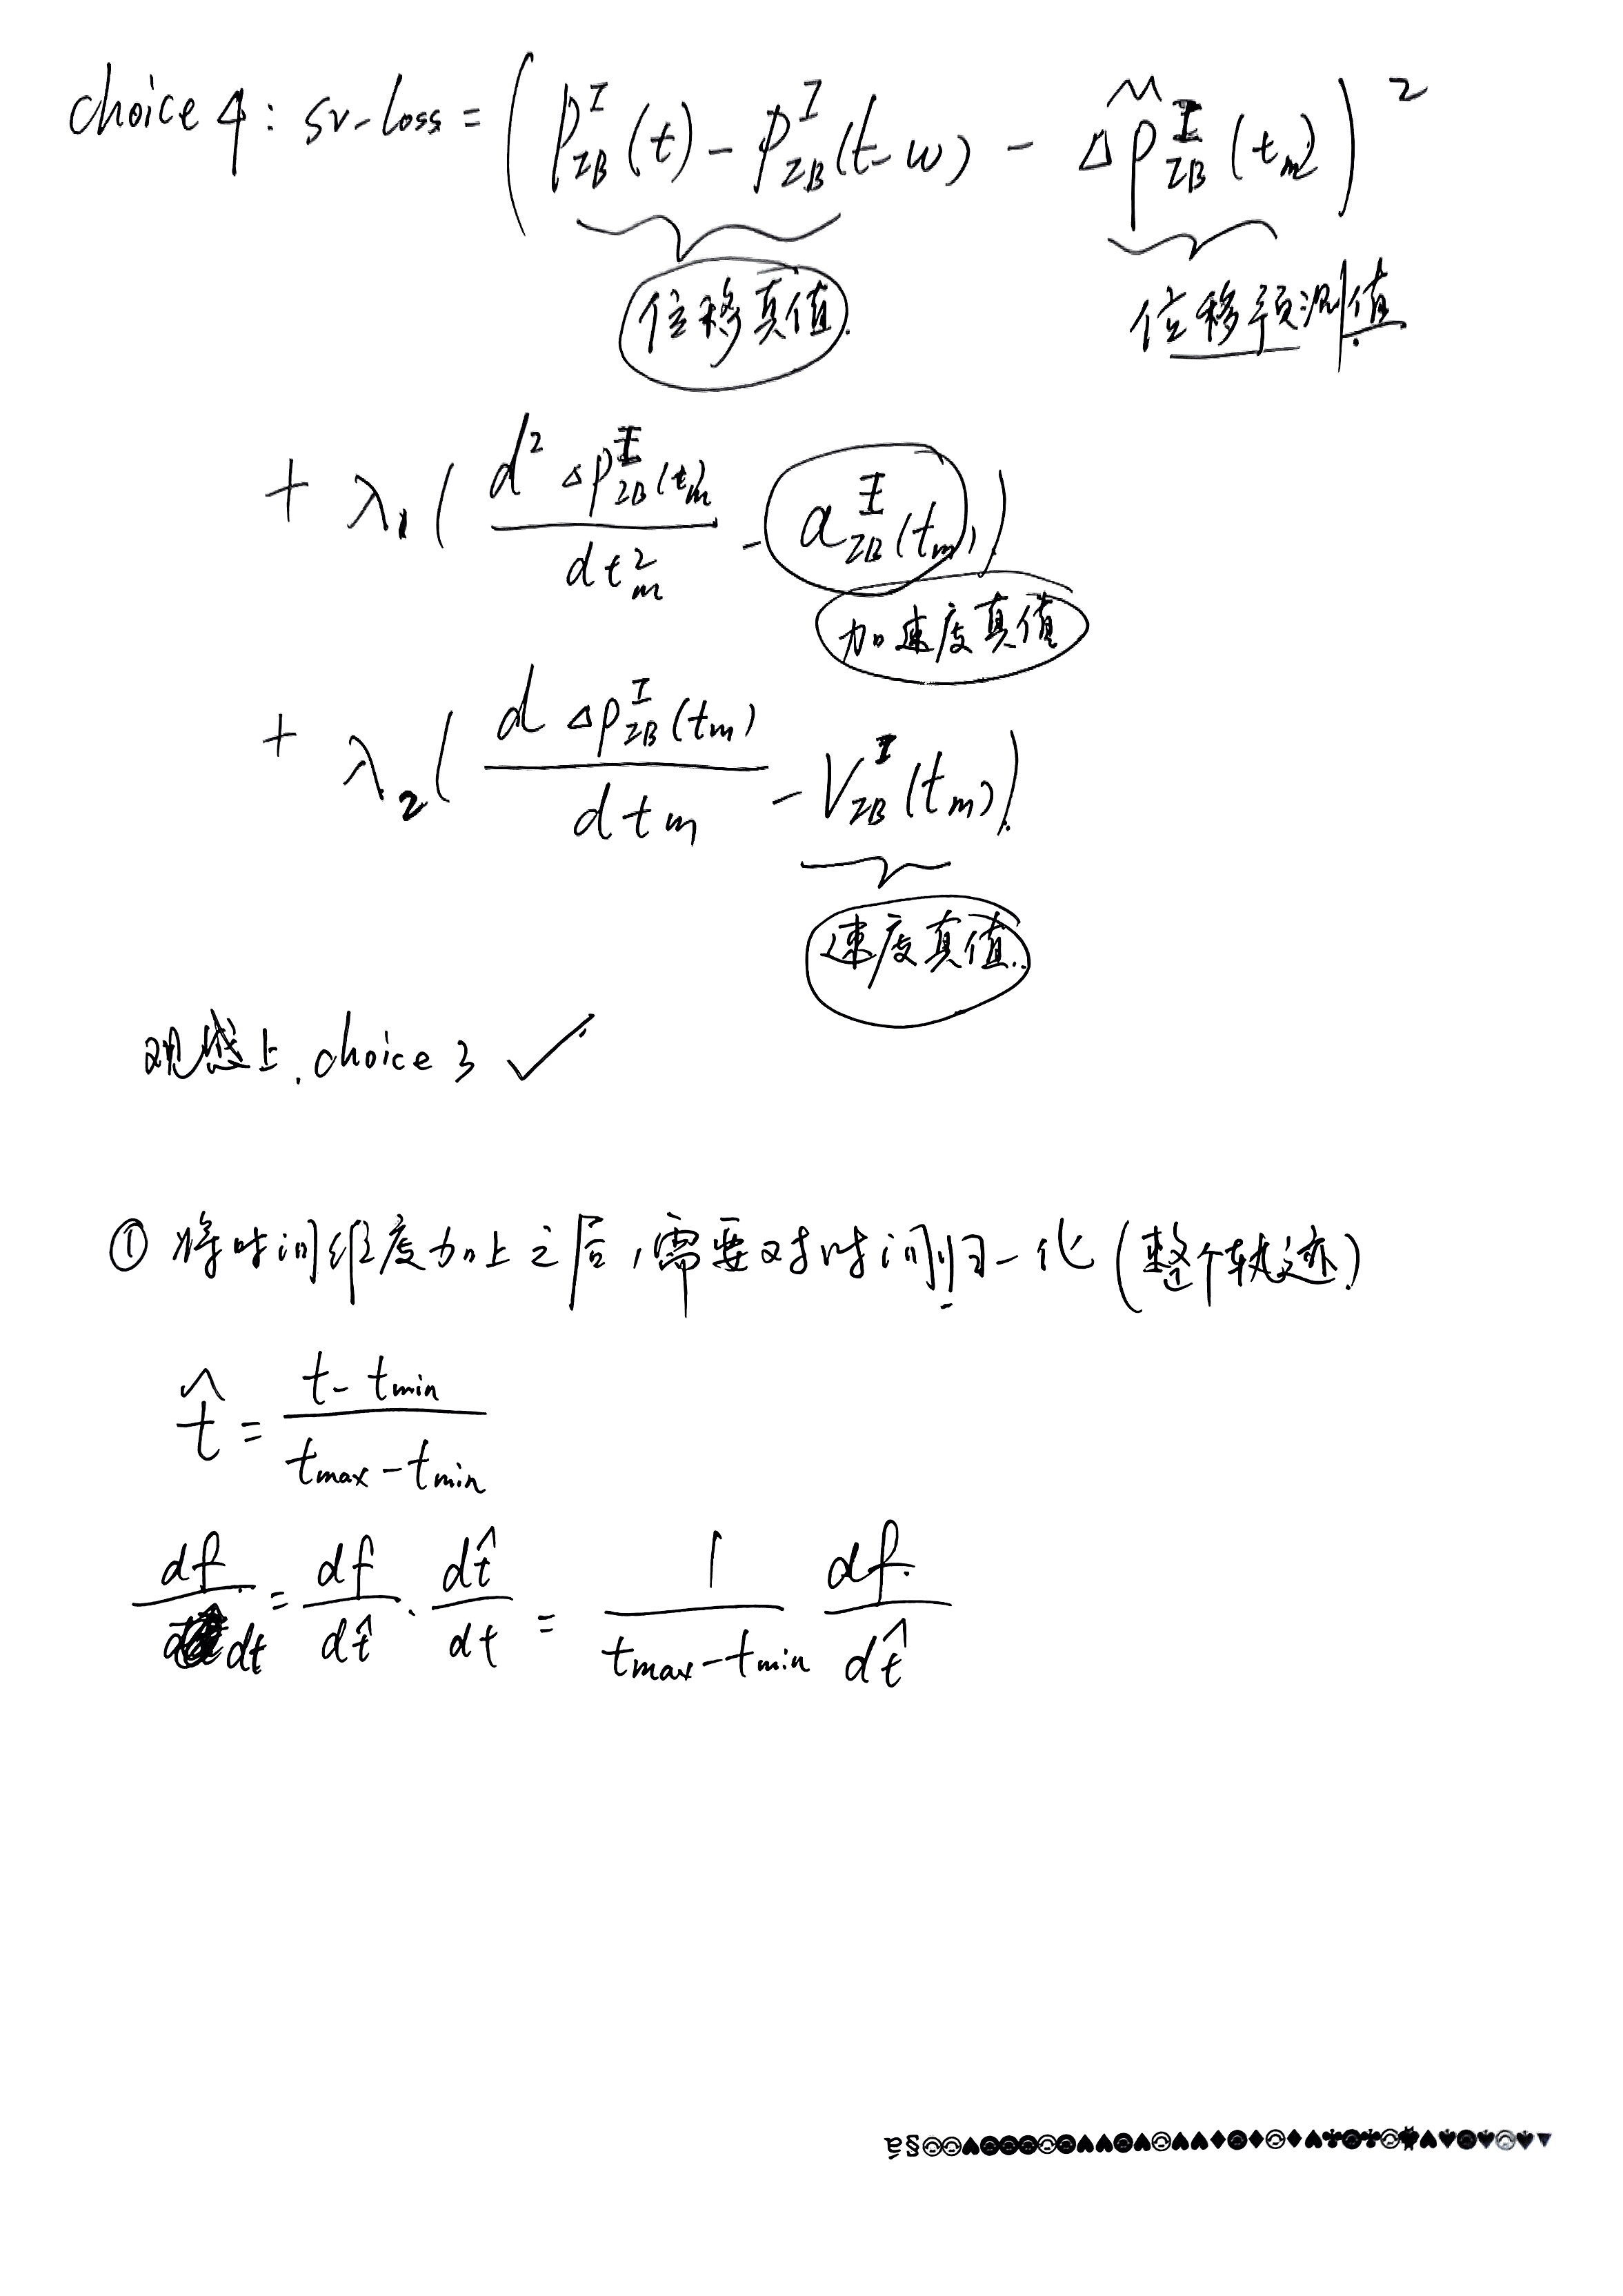 choice 4: sv-loss = ( P_{IB}^{I}(t) - P_{IB}^{I}(t-w) - Δ\tilde{P}_{IB}^{I}(t_m) )^2
位移真值.
位移预测值
+ λ_1 ( \frac{d^2 ΔP_{IB}^{I}(t_m)}{dt_m^2} - a_{IB}^{I}(t_m) )
加速度真值
+ λ_2 ( \frac{d ΔP_{IB}^{I}(t_m)}{dt_m} - V_{IB}^{I}(t_m) )
速度真值.
观感上. choice 3 ✓
① 将时间维度加上之后,需要对时间归一化(整个轨迹)
\hat{t} = \frac{t - t_{min}}{t_{max} - t_{min}}
\frac{df}{dt} = \frac{df}{d\hat{t}} · \frac{d\hat{t}}{dt} = \frac{1}{t_{max} - t_{min}} \frac{df}{d\hat{t}}